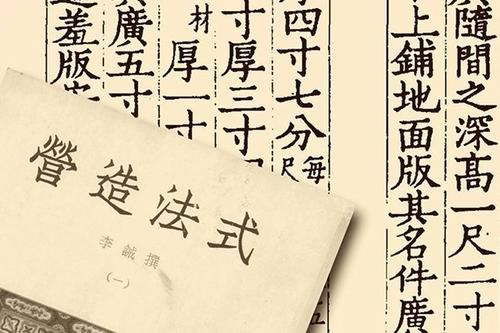 廣隨間之深高一尺二寸
上鋪地面版其名件廣
厚四寸七分每尺
寸厚三寸
材厚一寸
廣五寸
羞版
營造法式
李誡撰
（一）